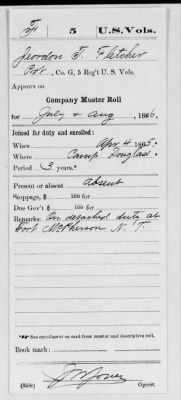 F 5 U.S. Vols.
Jeordon T. Fletcher
Pvt., Co. G, 5 Reg't U. S. Vols.
Appears on
Company Muster Roll
for July & Aug, 1866.
Joined for duty and enrolled:
When Apr 4, 1865.
Where Camp Douglas.
Period 3 years.*
Present or absent Absent
Stoppage, $ 100 for
Due Gov't $ 100 for
Remarks: On detached duty at
Fort McPherson N. T.
*See enrollment on card from muster and descriptive roll.
Book mark:
J M Jones
Copyist.